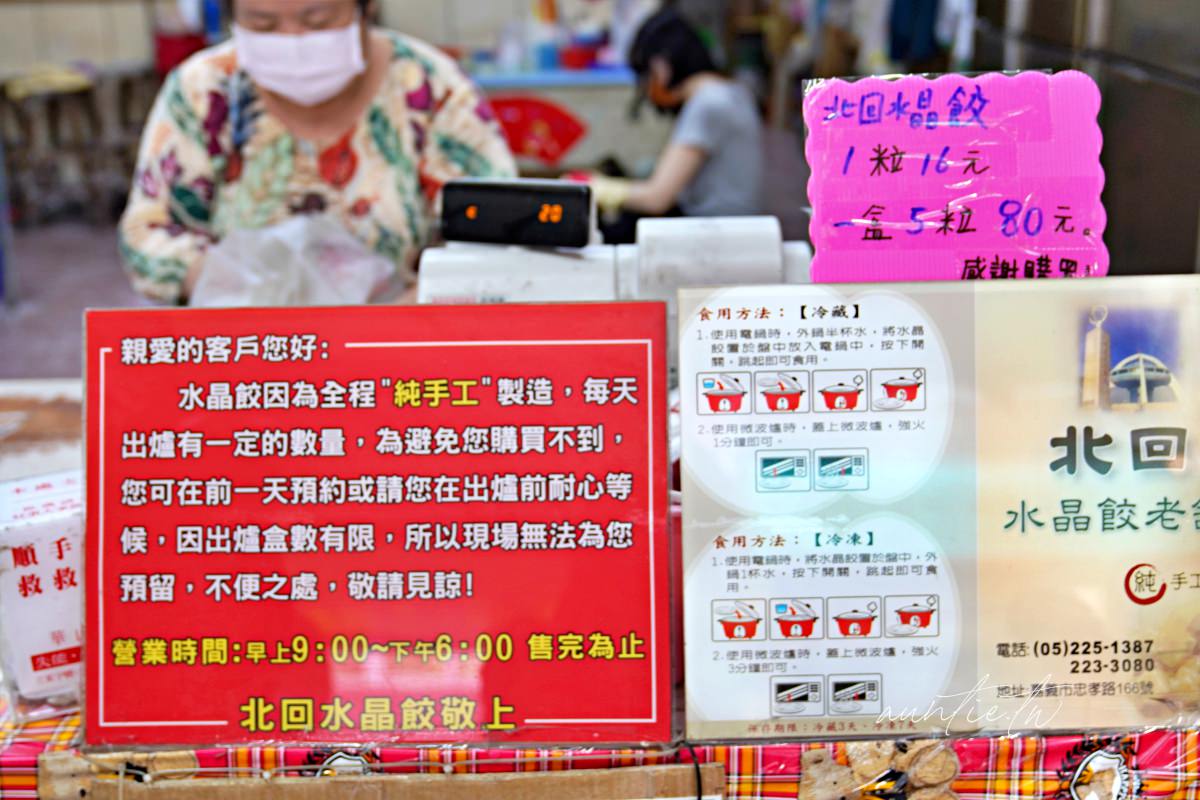 北回水晶餃
1粒16元
一盒5粒80元。
感謝購買
20
親愛的客戶您好:
水晶餃因為全程"純手工"製造，每天
出爐有一定的數量，為避免您購買不到，
您可在前一天預約或請您在出爐前耐心等
候，因出爐盒數有限，所以現場無法為您
預留，不便之處，敬請見諒!
營業時間:早上9:00~下午6:00 售完為止
北回水晶餃敬上
食用方法：【冷藏】
1.使用電鍋時，外鍋半杯水，將水晶
餃置於盤中放入電鍋中，按下開
關，跳起即可食用。
2.使用微波爐時，蓋上微波爐，強火
1分鐘即可。
食用方法：【冷凍】
1.使用電鍋時，將水晶餃置於盤中，外
鍋1杯水，按下開關，跳起即可食
用。
2.使用微波爐時，蓋上微波爐，強火
3分鐘即可。
保存期限：冷藏3天、冷凍7天
北回
水晶餃老
純 手工
電話:(05)225-1387
223-3080
地址:嘉義市忠孝路166號
auntie.tw
順手
救救